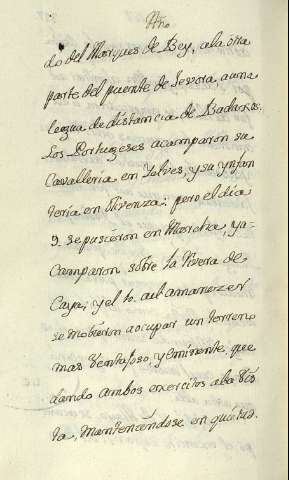 do del Marques de Bey, ala otra
parte del puente de Jevora, a una
legua de distancia de Badaxos.
Los Portugeses acamparon su
Cavalleria en Yelves, y su ynfan
teria en Olivenza: pero el dia
9. se pusieron en Marcha, ya-
camparon sobre la Rivera de
Caya; y el 10. al amanezer
se mobieron a ocupar un terreno
mas Ventajoso, y eminente, que
dando ambos exercitos ala Vis
ta, Manteniendose en quietud.